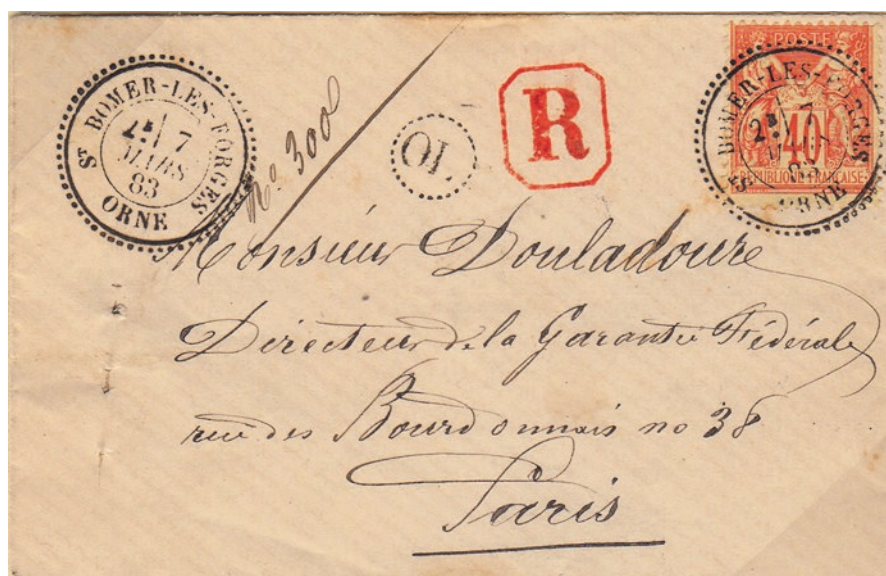 St BOMER-LES-FORGES
2E 7
MARS
83
ORNE
No 300
OL
R
POSTE
40
REPUBLIQUE FRANÇAISE
St BOMER-LES-FORGES
2E 7
83
ORNE
Monsieur Douladoure
Directeur de la Garantie Fédérale
rue des Bourdonnais no 38
Paris